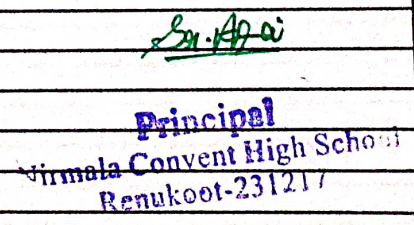 Principal
Nirmala Convent High School
Renukoot-231217